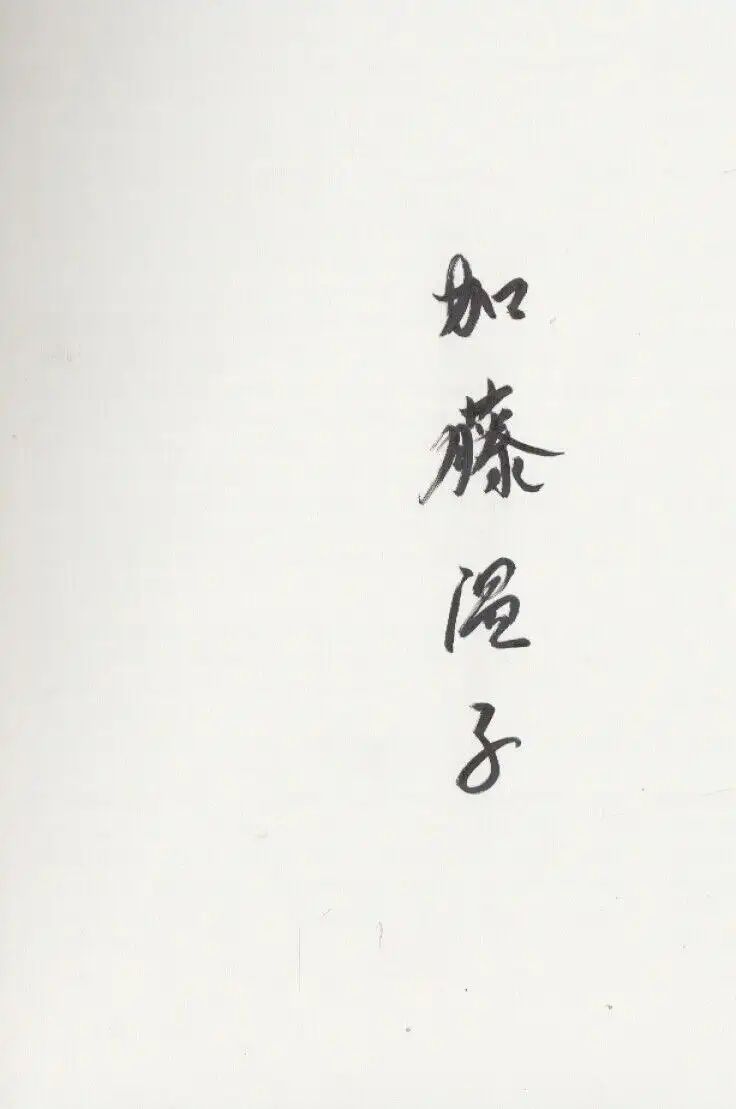 加藤温子